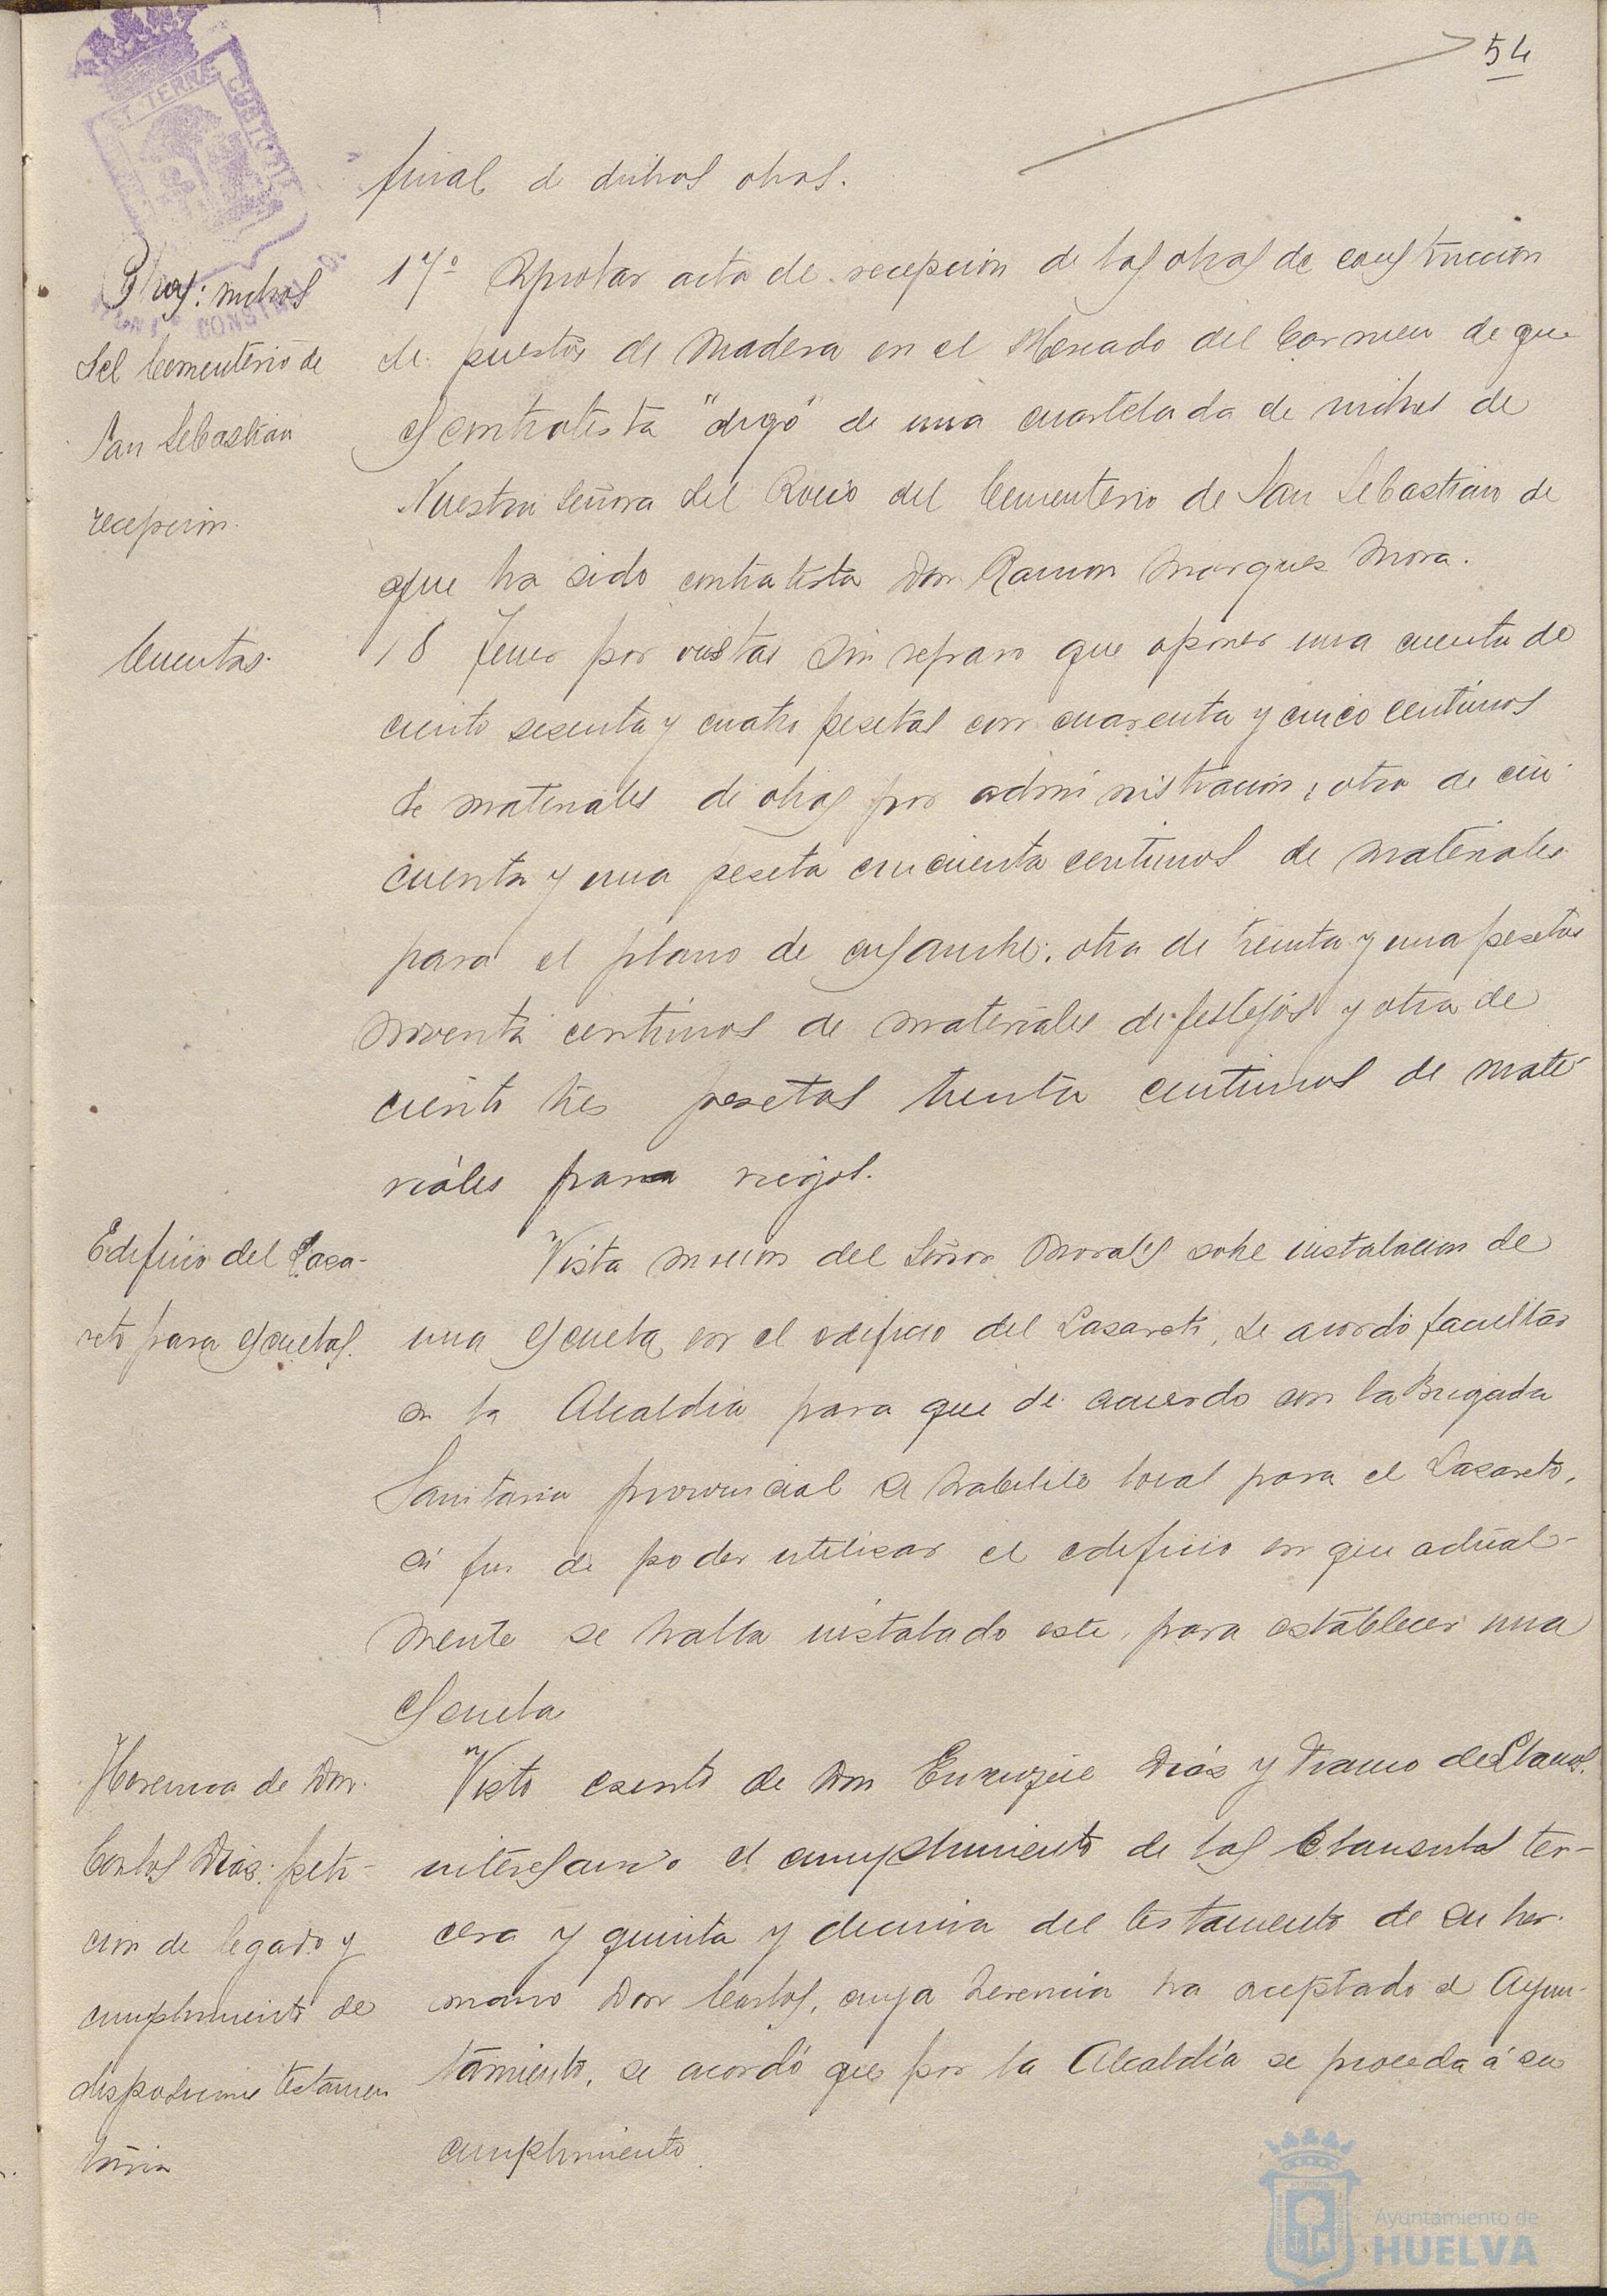 54
final de dichas obras.
Obras: nichos
del Cementerio de
San Sebastian
recepcion.
17º Aprobar acta de recepcion de las obras de construccion
de puestos de madera en el Mercado del Carmen de que
es contratista "digo" de una cuartelada de nichos de
Nuestra Señora del Rocio del Cementerio de San Sebastian de
que ha sido contratista Don Ramon Marquez Mora.
Cuentas.
18 Tener por vistas sin reparo que oponer una cuenta de
ciento sesenta y cuatro pesetas con cuarenta y cinco centimos
de materiales de obras por administracion; otra de cin-
cuenta y una peseta cincuenta centimos de materiales
para el plano de ensanche; otra de treinta y una pesetas
noventa centimos de materiales de festejos y otra de
ciento tres pesetas treinta centimos de mate-
riales para riegos.
Edificio del Laza-
reto para escuelas.
Vista mocion del Señor Morales sobre instalacion de
una escuela en el edificio del Lazareto, se acordó facultar
a la Alcaldia para que de acuerdo con la Brigada
Sanitaria provincial se habilite local para el Lazareto,
á fin de poder utilizar el edificio en que actual-
mente se halla instalado este, para establecer una
escuela
Herencia de Don
Carlos Diaz: peti-
cion de legado y
cumplimiento de
disposiciones testamen
taria
Visto escrito de Don Enrique Diaz y Franco de Llanos.
interesando el cumplimiento de las clausulas ter-
cera y quinta y decima del testamento de su her-
mano Don Carlos, cuya herencia ha aceptado el Ayun-
tamiento, se acordó que por la Alcaldía se proceda á su
cumplimiento.
Ayuntamiento de
HUELVA